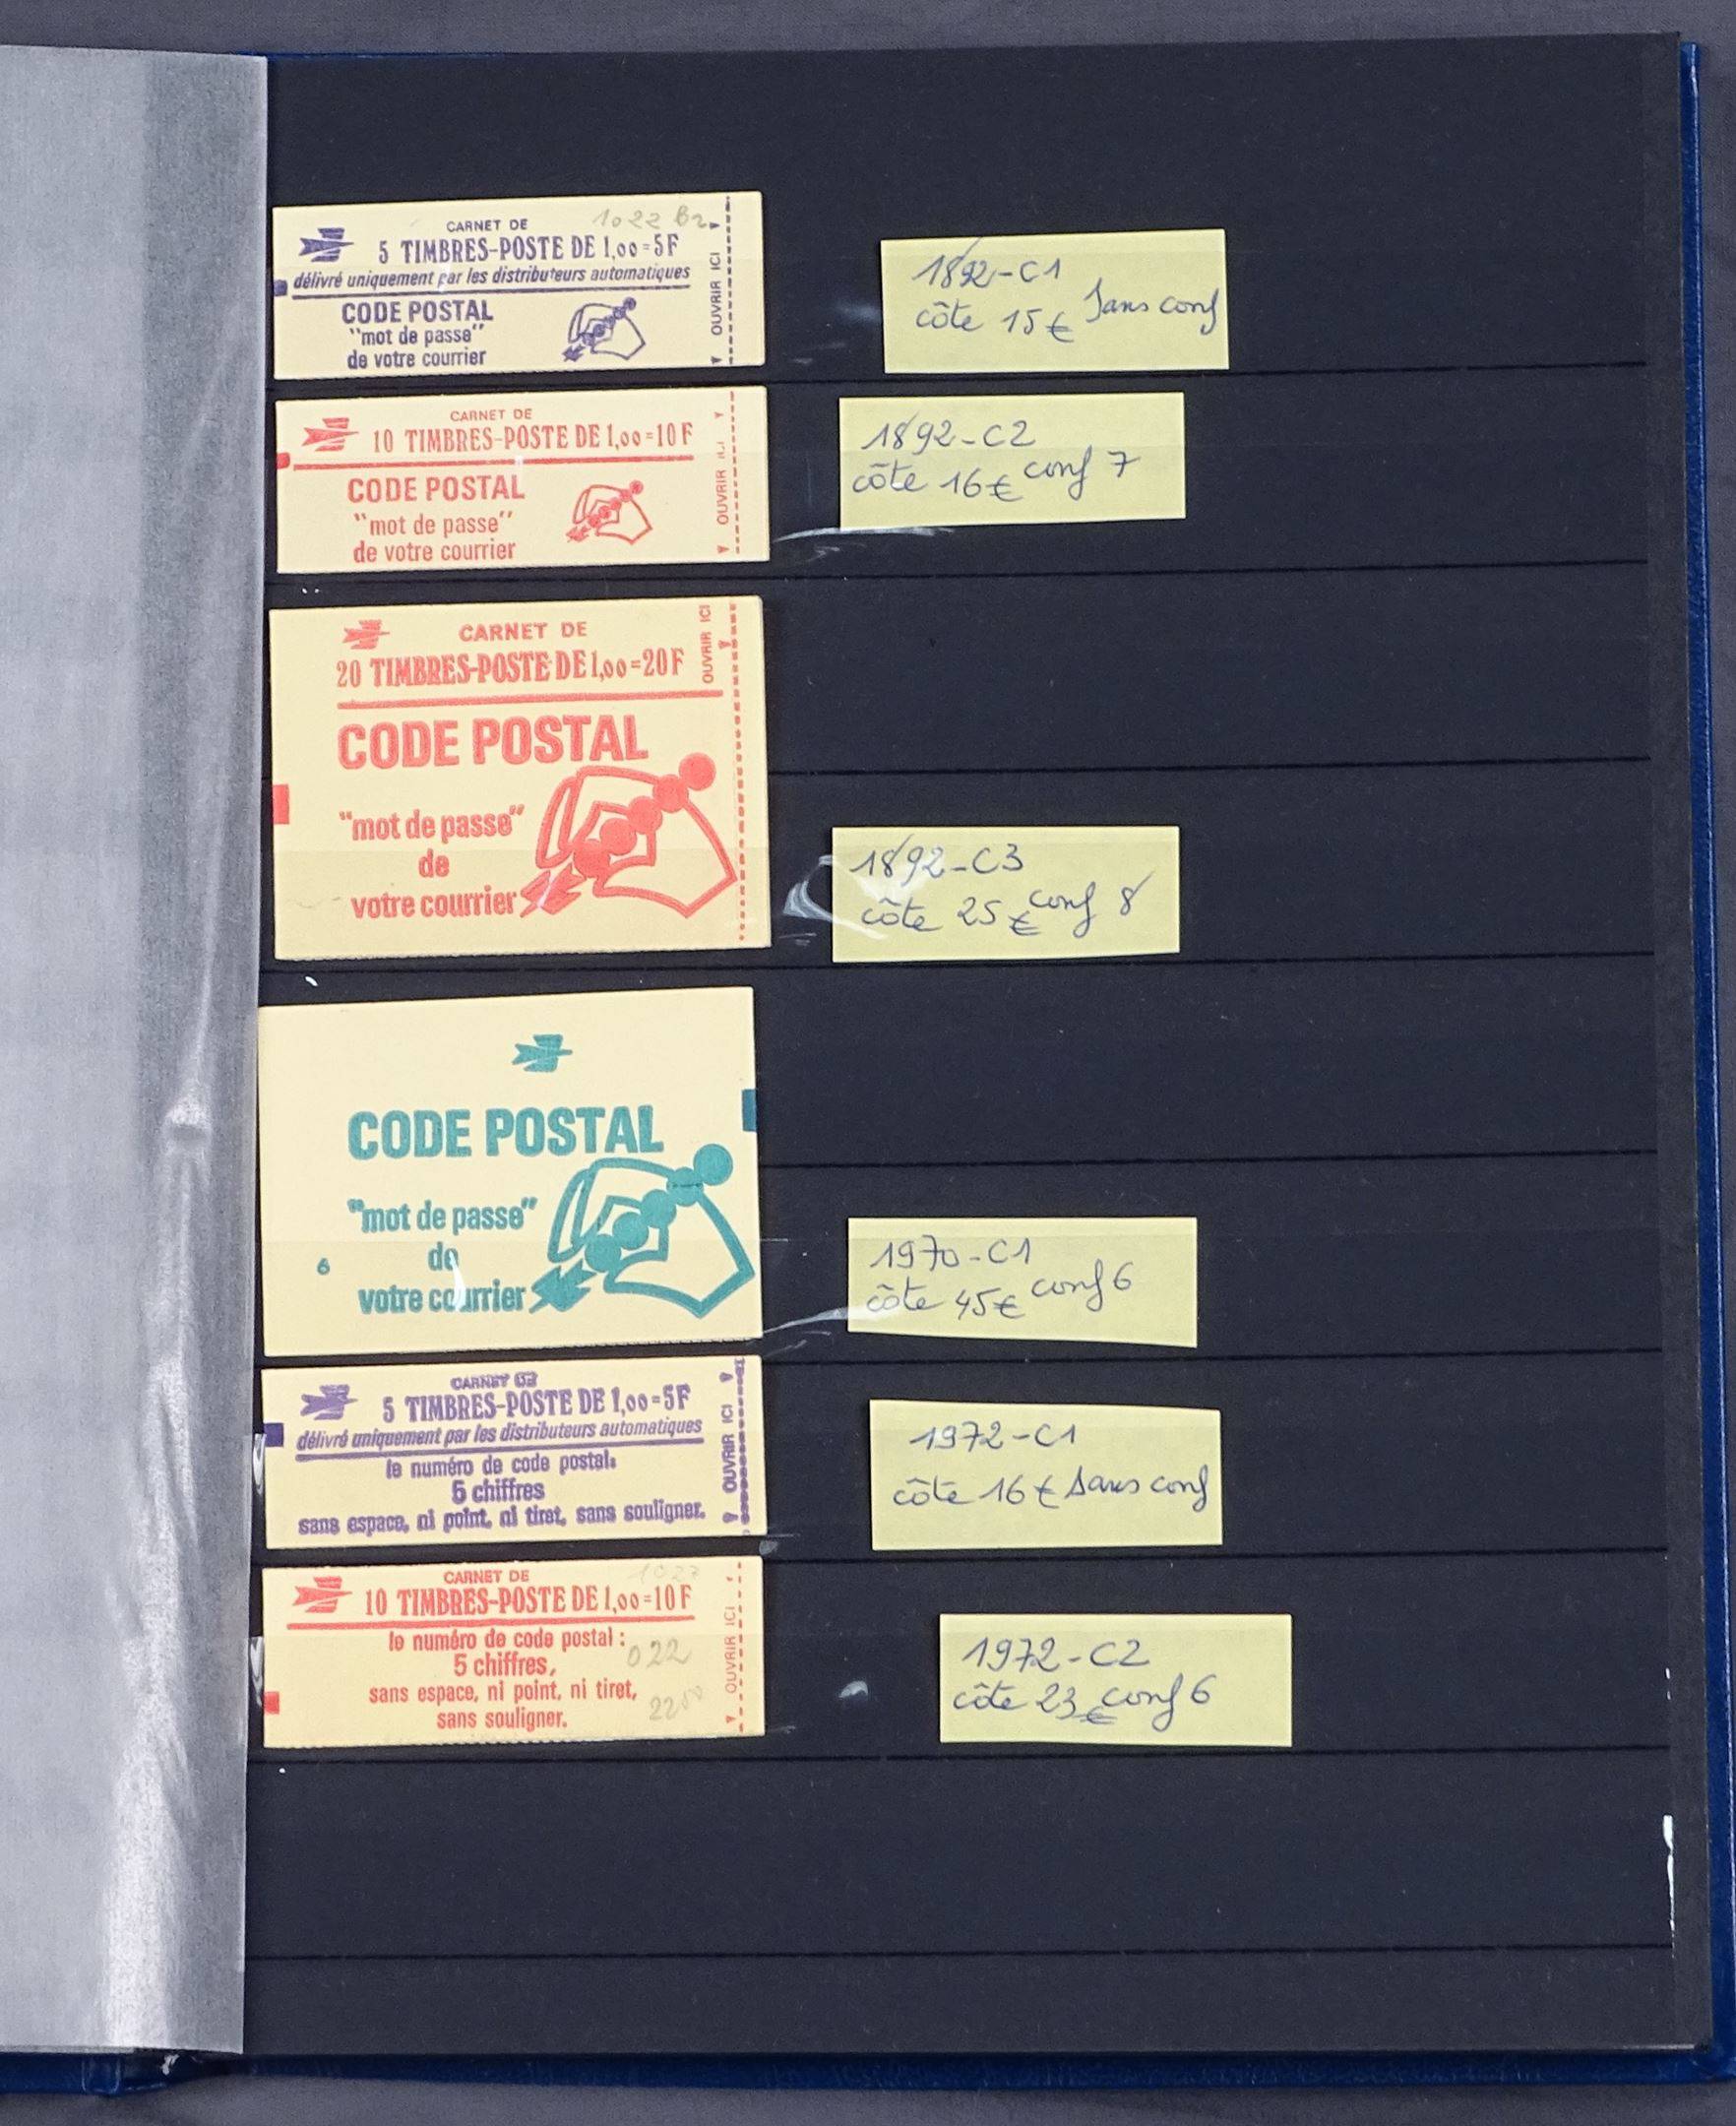 CARNET DE 1022 B2
5 TIMBRES-POSTE DE 1,00=5F
délivré uniquement par les distributeurs automatiques
CODE POSTAL
"mot de passe"
de votre courrier
OUVRIR ICI
1892-C1
côte 15€ Sans conf
CARNET DE
10 TIMBRES-POSTE DE 1,00=10F
CODE POSTAL
"mot de passe"
de votre courrier
OUVRIR ICI
1892-C2
côte 16€ conf 7
CARNET DE
20 TIMBRES-POSTE DE 1,00=20F
CODE POSTAL
"mot de passe"
de
votre courrier
OUVRIR ICI
1892-C3
côte 25€ conf 8
CODE POSTAL
"mot de passe"
6 de
votre courrier
1970-C1
côte 45€ conf 6
CARNET DE
5 TIMBRES-POSTE DE 1,00=5F
délivré uniquement par les distributeurs automatiques
le numéro de code postal:
5 chiffres
sans espace, ni point, ni tiret, sans souligner.
OUVRIR ICI
1972-C1
côte 16€ Sans conf
CARNET DE
10 TIMBRES-POSTE DE 1,00=10F
le numéro de code postal :
5 chiffres, 022
sans espace, ni point, ni tiret,
sans souligner.
OUVRIR ICI
1972-C2
côte 23€ conf 6